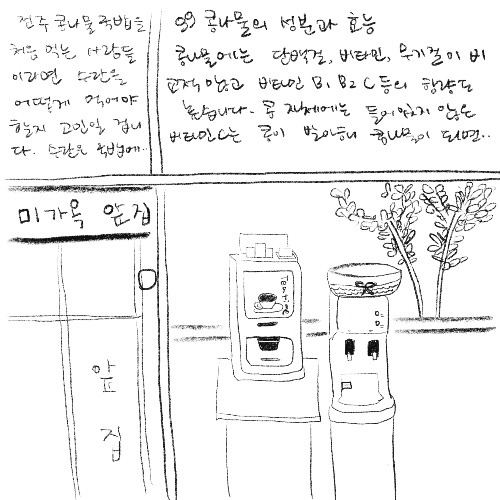 전주 콩나물국밥을
처음 먹는 사람들
이라면 수란을
어떻게 먹어야
할지 고민일 겁니
다. 수란은 국밥에..
콩나물의 성분과 효능
콩나물에는 단백질, 비타민, 무기질이 비
교적 많고 비타민 B1 B2 C 등의 함량도
높습니다. 콩 자체에는 들어있지 않은
비타민C는 콩이 발아해 콩나물이 되면..
미가옥 앞집
앞
집